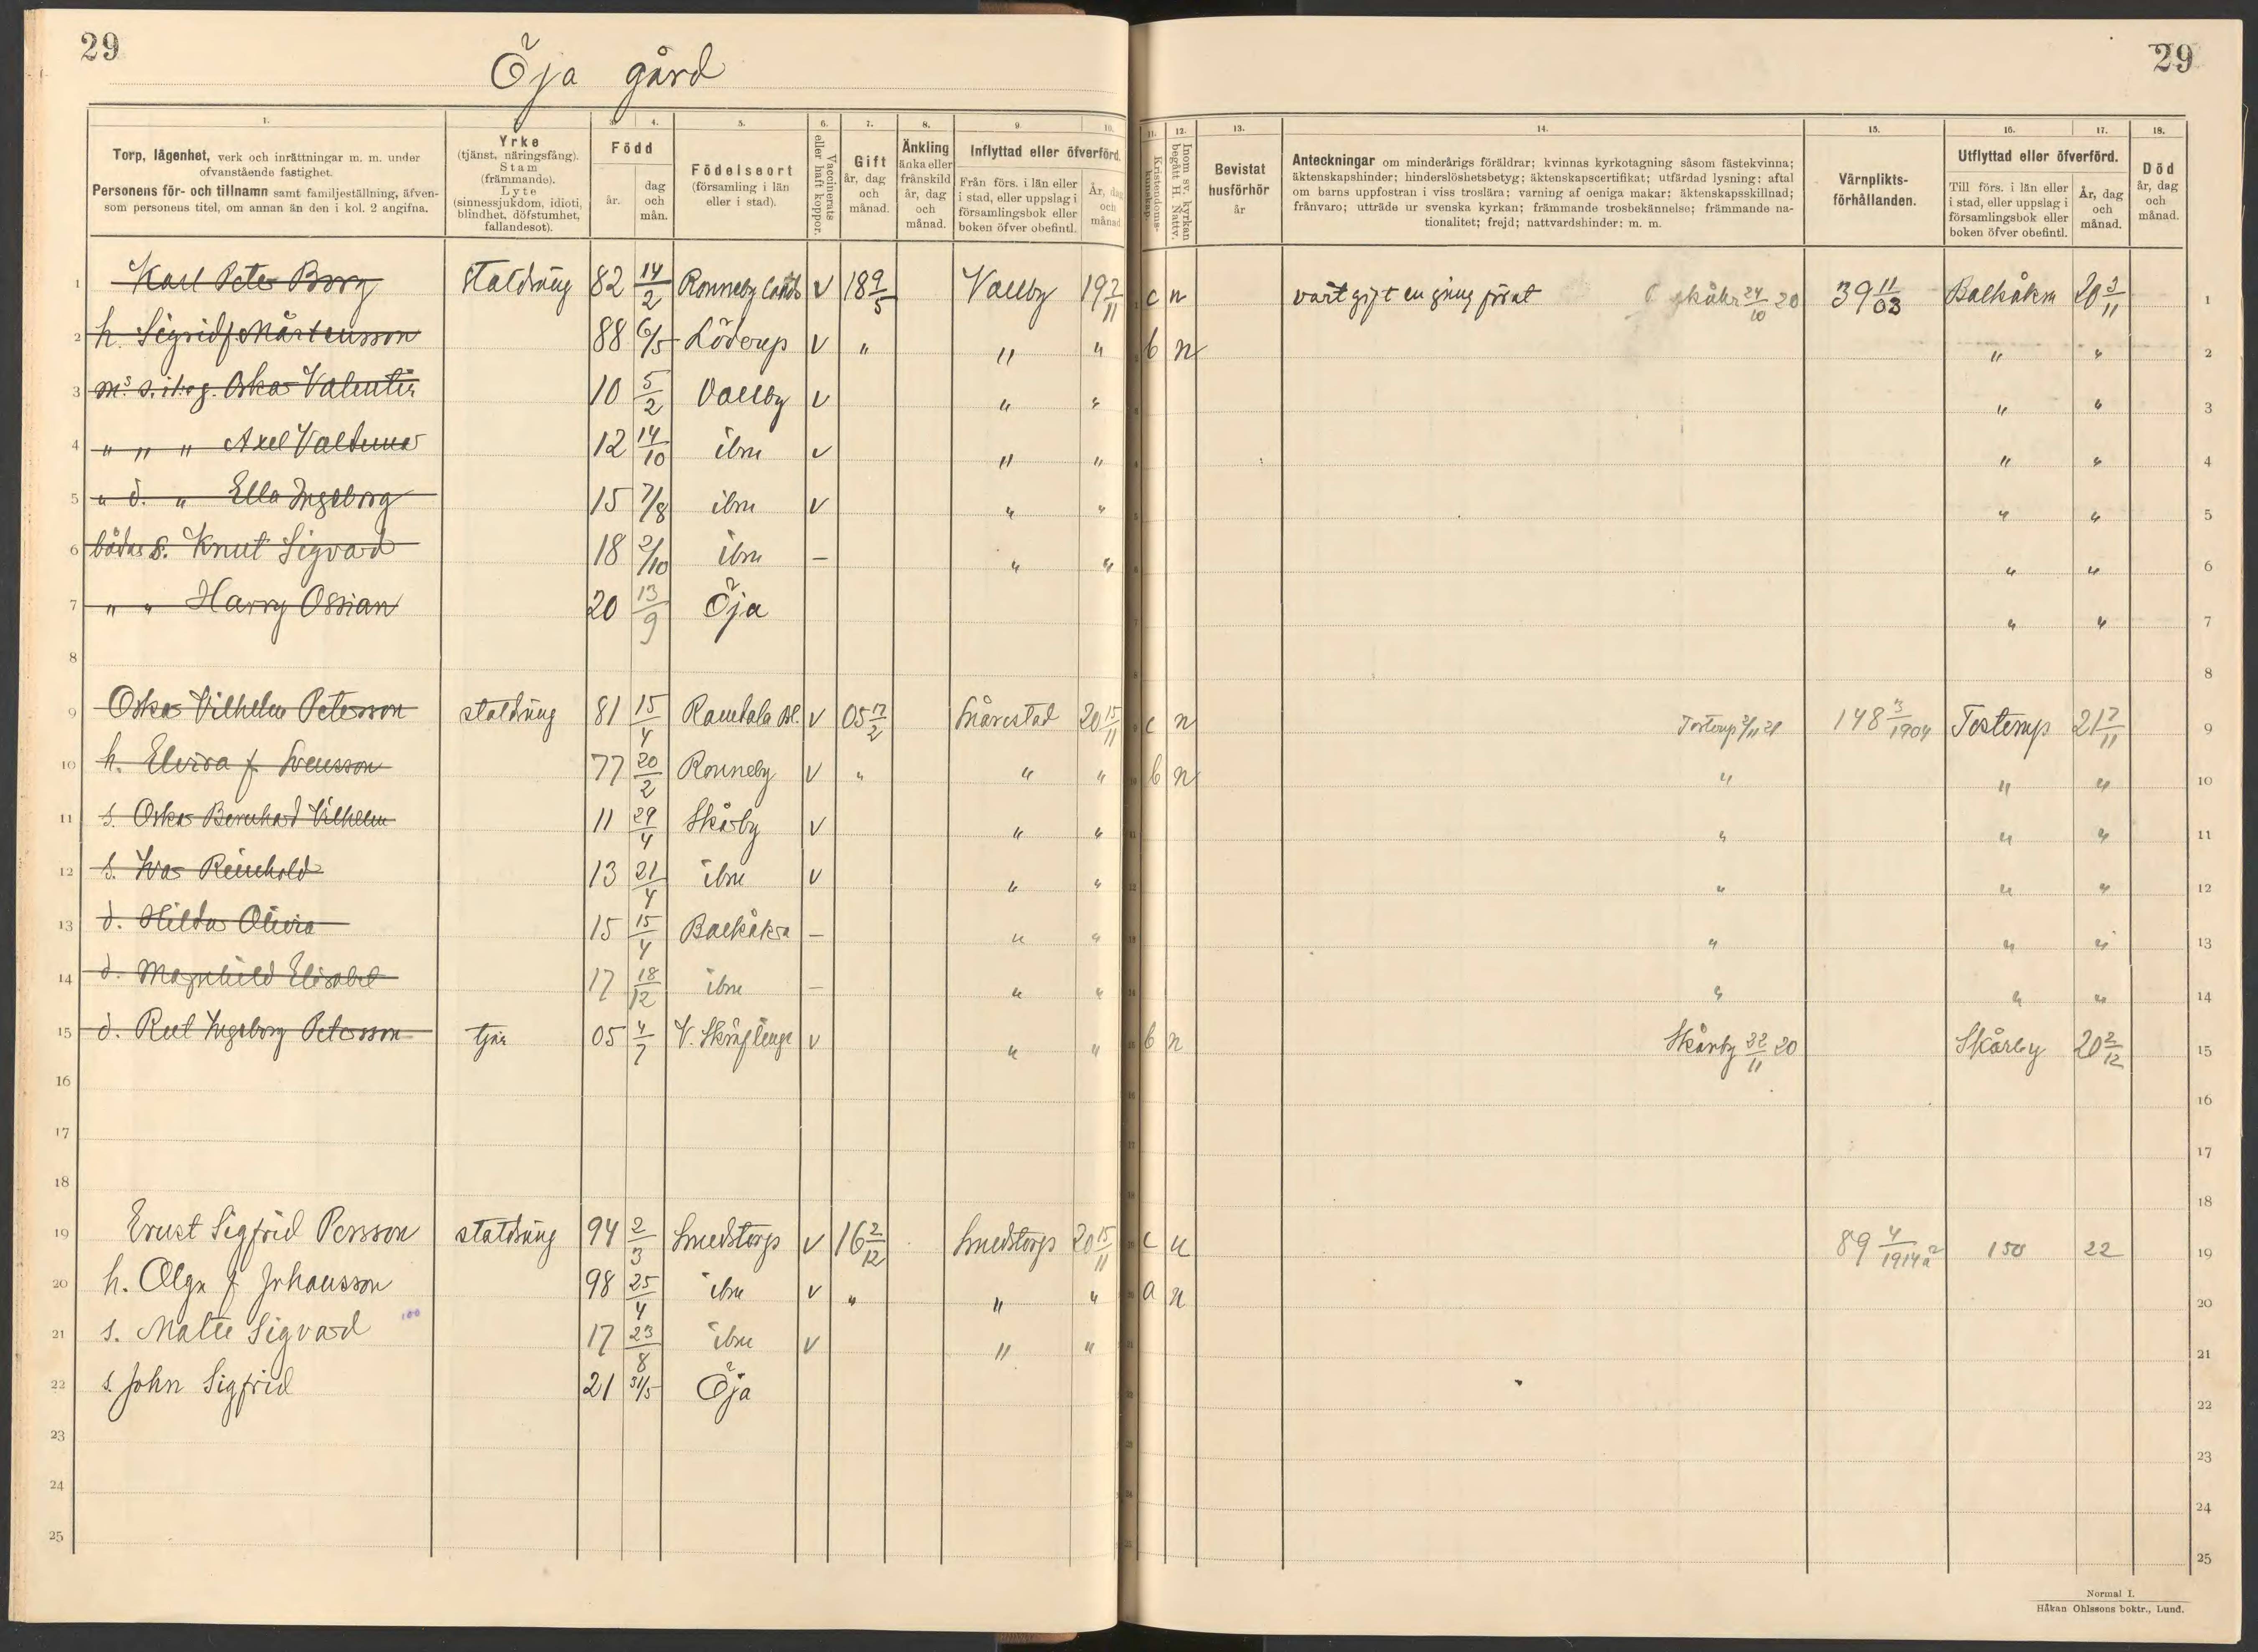 29
Öja gård
29
1.
2.
3.
4.
5.
6.
7.
8.
9
10.
11.
12.
13.
14.
15.
16.
17.
18.
Torp, lägenhet, verk och inrättningar m. m. under
ofvanstående fastighet.
Personens för- och tillnamn samt familjeställning, äfven-
som personens titel, om annan än den i kol. 2 angifna.
Yrke
(tjänst, näringsfång).
Stam
(främmande).
Lyte
(sinnessjukdom, idioti,
blindhet, döfstumhet,
fallandesot).
Född
år.
dag
och
mån.
Födelseort
(församling i län
eller i stad).
Vaccinerats
eller haft koppor.
Gift
år, dag
och
månad.
Änkling
änka eller
frånskild
år, dag
och
månad.
Inflyttad eller öfverförd.
Från förs. i län eller
i stad, eller uppslag i
församlingsbok eller
boken öfver obefintl.
År, dag
och
månad
Kristendoms-
kunskap.
Inom sv. kyrkan
begått H. Nattv.
Bevistat
husförhör
år
Anteckningar om minderårigs föräldrar; kvinnas kyrkotagning såsom fästekvinna;
äktenskapshinder; hinderslöshetsbetyg; äktenskapscertifikat; utfärdad lysning; aftal
om barns uppfostran i viss troslära; varning af oeniga makar; äktenskapsskillnad;
frånvaro; utträde ur svenska kyrkan; främmande trosbekännelse; främmande na-
tionalitet; frejd; nattvardshinder; m. m.
Värnplikts-
förhållanden.
Utflyttad eller öfverförd.
Till förs. i län eller
i stad, eller uppslag i
församlingsbok eller
boken öfver obefintl.
År, dag
och
månad.
Död
år, dag
och
månad.
1 Karl Peter Borg statdräng 82 14/2 Ronneby v 18 9/5 Vallby 19 2/11 c n varit gift en gång förut 24/10 20 39 11/03 Balkåkra 20 3/11 1
2 h. Sigrid f. Mårtensson 88 6/5 Löderup v " " " b n " " 2
3 Oskar Valentin 10 5/2 Vallby v " " " " 3
4 " " " Axel Valdemar 12 14/10 ibm v " " " " 4
5 " d. " Ella Ingeborg 15 7/8 ibm v " " " " 5
6 bådas s. Knut Sigvard 18 2/10 ibm – " " " " 6
7 " " Harry Ossian 20 13/9 Öja " " 7
8 8
9 Oskar Vilhelm Petersson statdräng 81 15/4 Ramdala Bl. v 05 17/2 Snårestad 20 15/11 c n Tosterup 2/11 21 148 3/1904 Tosterup 21 7/11 9
10 h. Elvira f. Svensson 77 20/2 Ronneby v " " " b n " " " 10
11 s. Oskar Bernhard Vilhelm 11 29/4 Skårby v " " " " " 11
12 s. Ivar Reinhold 13 21/4 ibm v " " " " " 12
13 d. Hilda Olivia 15 15/4 Balkåkra – " " " " " 13
14 d. Magnhild Elisabet 17 18/12 ibm – " " " " " 14
15 d. Rut Ingeborg Petersson 05 4/7 V. Skräflinge v " " b n Skårby 22/11 20 Skårby 20 2/12 15
16 16
17 17
18 18
19 Ernst Sigfrid Persson statdräng 94 2/3 Smedstorp v 16 2/12 Smedstorp 20 15/11 c n 89 4/1914 150 22 19
20 h. Olga f. Johansson 98 25/4 ibm v " " " a n 20
100
21 s. Malte Sigvard 17 23/8 ibm v " " 21
22 s. John Sigfrid 21 31/5 Öja 22
23 23
24 24
25 25
Normal I.
Håkan Ohlssons boktr., Lund.